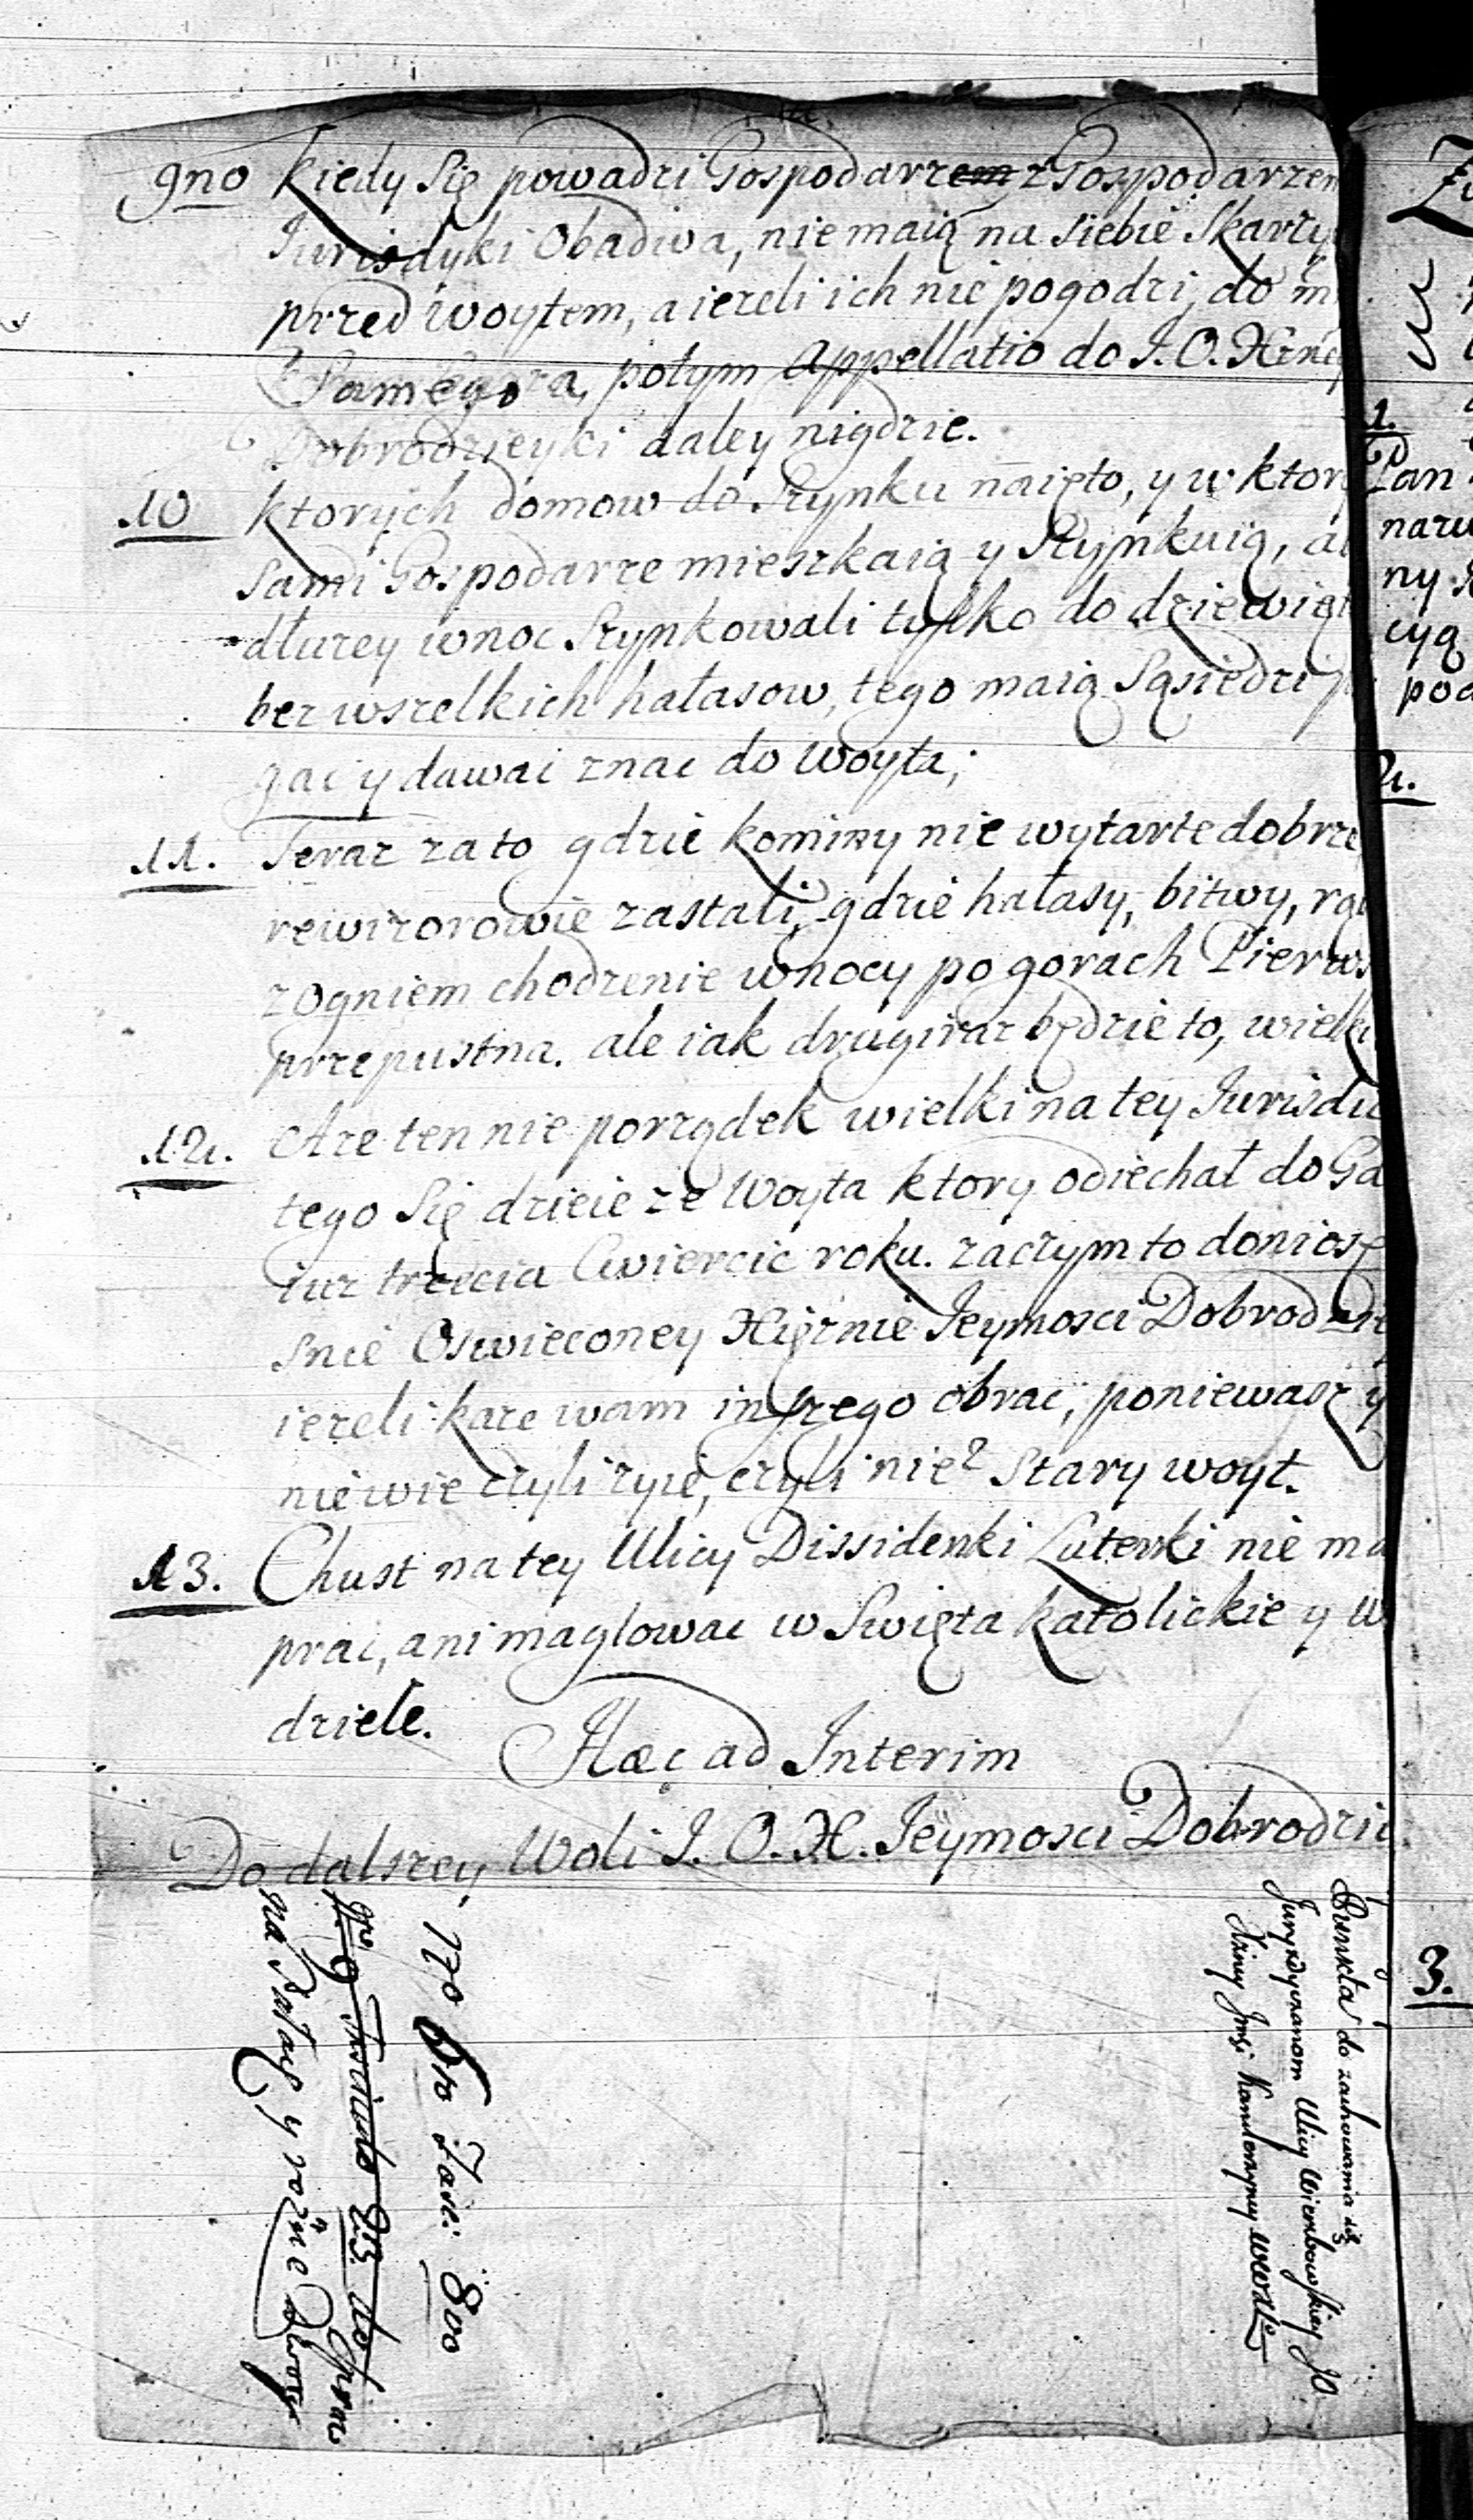 9no Kiedy Się powadzi Gospodarzem z Gospodarzem
Jurisdyki Obadwa, nie maią na siebie Skarży
przed woytem, a ieżeli ich nie pogodzi, do m
potym Appellatio do J. O. Xżney
Dobrodzieyki daley nigdzie.
10 Ktorych domow do Szynku naięto, y w ktory
Sami Gospodarze mieszkaią y Szynkuią, a
dłużey w noc Szynkowali tylko do dziewiąt
bez wszelkich hałasow, tego maią Sąsiedzi
gac y dawac znac do Woyta;
11. Teraz za to gdzie kominy nie wytarte dobrze
rewizorowie zastali, gdzie hałasy, bitwy,
z ogniem chodzenie w nocy po gorach Pierws
przepustna. ale iak drugi raz będzie to, wielki
12. A że ten nie porządek wielki na tey Jurisdi
tego Się dzieie ze Woyta ktory odiechał do Ga
iuz trzecia Cwiercic roku. zaczym to doniosę
snie Oswieconey Xiężnie Jeymosci Dobrodzie
iezeli każe wam inszego obrac, poniewasz y
nie wie czyli żyie, czyli nie? Stary woyt.
13. Chust na tey Ulicy Dissidenki Luterki nie ma
prac, ani maglowac w Swięta katolickie y w
dziele.
Hæc ad Interim
Do dalszey Woli J. O. X. Jeymosci Dobrodzie
Punkta do zachowania się
Jurysdyczanom Ulicy Wierzbowskiey JO
Xżney Jmsi Kanclerzyney WWXLo
770 6to Jasie: 800
gro 9 213 do
na Pałac y rożne
Zu
1.
Pan
naru
ny
cyą
pod
2.
3.